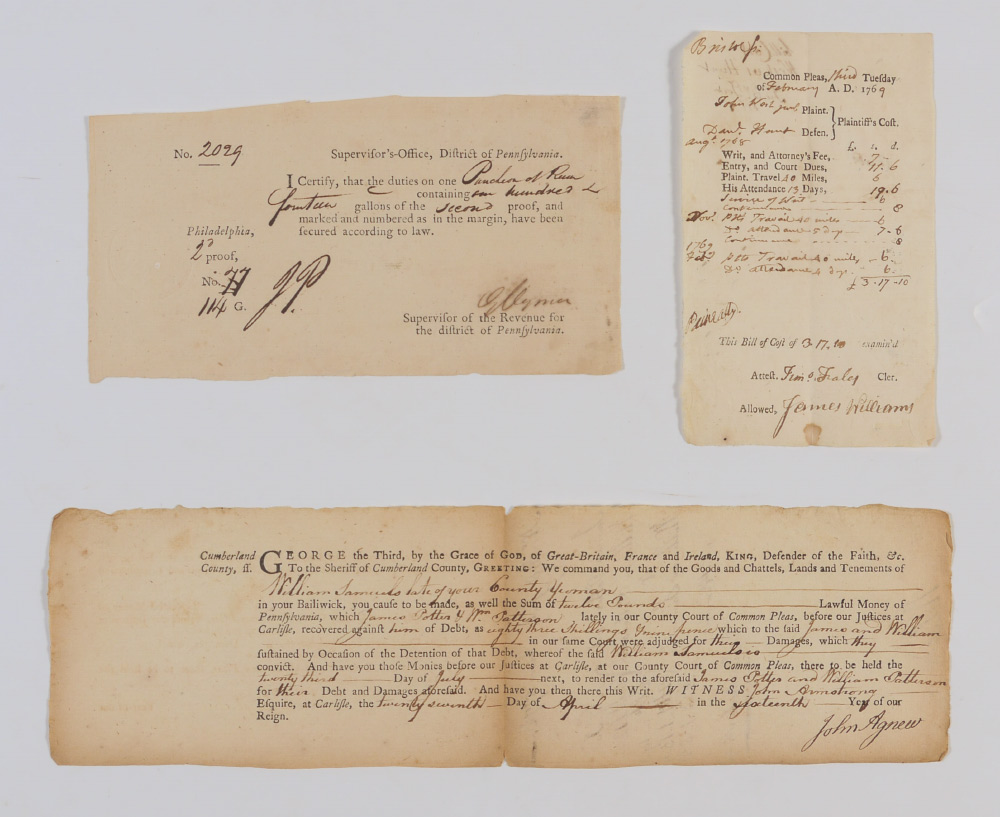 No. 2029 Supervisor's-Office, District of Pennsylvania.
I Certify, that the duties on one Puncheon of Rum
containing one hundred &
fourteen gallons of the second proof, and
marked and numbered as in the margin, have been
secured according to law.
Philadelphia,
2d proof,
No. 77
114 G.
J P
G Clymer
Supervisor of the Revenue for
the district of Pennsylvania.
Bristol ſs.
Common Pleas, third Tueſday
of February A. D. 1769
John Plaint.
Danl. Hunt Defen.
Plaintiff's Coſt.
Augt. 1768
£. s. d.
Writ, and Attorney's Fee, 7-
Entry, and Court Dues, 11-6
Plaint. Travel 40 Miles, 6
His Attendance 13 Days, 19-6
Service of 6
Continuance 8
Nov. Pltfs Travail 40 miles 6
Do. attendance 5 days 7-6
Continuance 8
1769
Feby. Pltfs Travail 40 miles 6
Do. attendance 4 days 6
£ 3-17-10
This Bill of Coſt of 3-17-10 examin'd
Atteſt. Timo. Fales Cler.
Allowed, James Williams
Cumberland County, ſſ.
GEORGE the Third, by the Grace of GOD, of Great-Britain, France and Ireland, KING, Defender of the Faith, &c.
To the Sheriff of Cumberland County, GREETING: We command you, that of the Goods and Chattels, Lands and Tenements of
William Samuels late of your County Yeoman
in your Bailiwick, you cauſe to be made, as well the Sum of twelve Pounds Lawful Money of
Pennſylvania, which James Potter & Wm. Patterson lately in our County Court of Common Pleas, before our Juſtices at
Carliſle, recovered againſt him of Debt, as eighty three Shillings & nine pence which to the ſaid James and William
in our ſame Court were adjudged for their Damages, which they
ſuſtained by Occaſion of the Detention of that Debt, whereof the ſaid William Samuels is
convict. And have you thoſe Monies before our Juſtices at Carliſle, at our County Court of Common Pleas, there to be held the
twenty third Day of July next, to render to the aforeſaid James Potter and William Patterson
for their Debt and Damages aforeſaid. And have you then there this Writ. WITNESS John Armstrong
Eſquire, at Carliſle, the twenty seventh Day of April in the sixteenth Year of our
Reign.
John Agnew